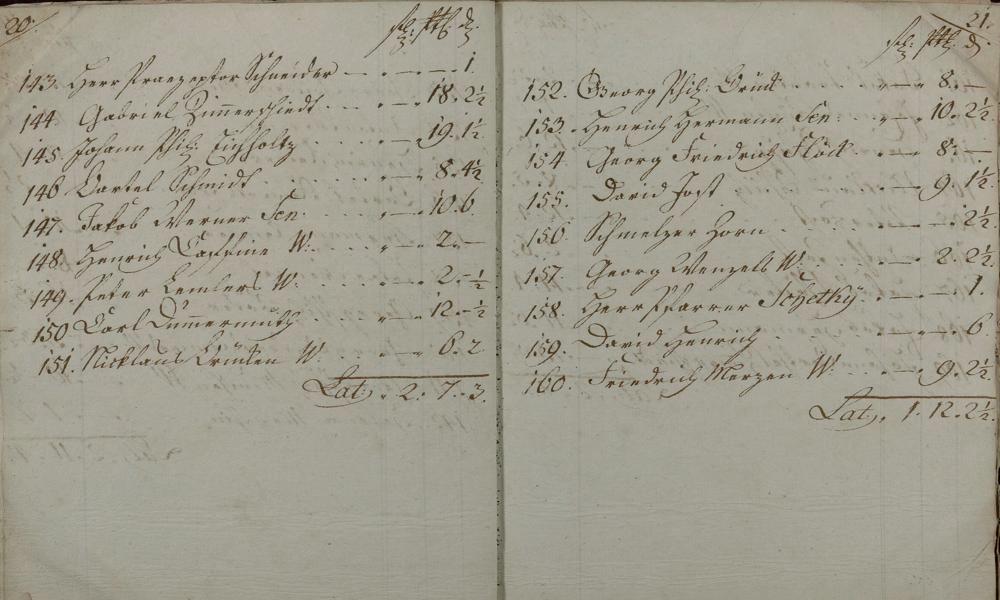 20.
143. Herr Praezeptor Schneider — . — — 1.
144. Gabriel Zimmerschiedt . . . — 18. 2½
145. Johann Phil: Eichholtz . . . . . — 19. 1½
146 Bartel Schmidt . . . . . . 8. 4½
147. Jakob Werner Sen: . . . . — 10. 6.
148. Henrich W: . . . . — 2. —
149. Peter Lemlers W: . . . . — 2. - ½
150 Carl Dummermuth . . . . — 12. - ½
151. Nicklaus W . . . . — 6. 2
Lat: . 2. 7. 3.
21.
152. Georg Phil: . . . . . — 8. —
153. Henrich Hermann Sen: . . — 10. 2½
154. Georg Friedrich Flöck . . — 8. —
155. David Jost . . . . . . — 9. 1½
156. Schmelzer Horn . . . . . — — 2½
157. Georg Wenzels W: . . . — 2. 2½
158. Herr Pfarrer . . — — 1.
159. David Henrich . . . . . — — 6
160. Friedrich Merzen W: . . . — 9. 2½
Lat: . 1. 12. 2½.